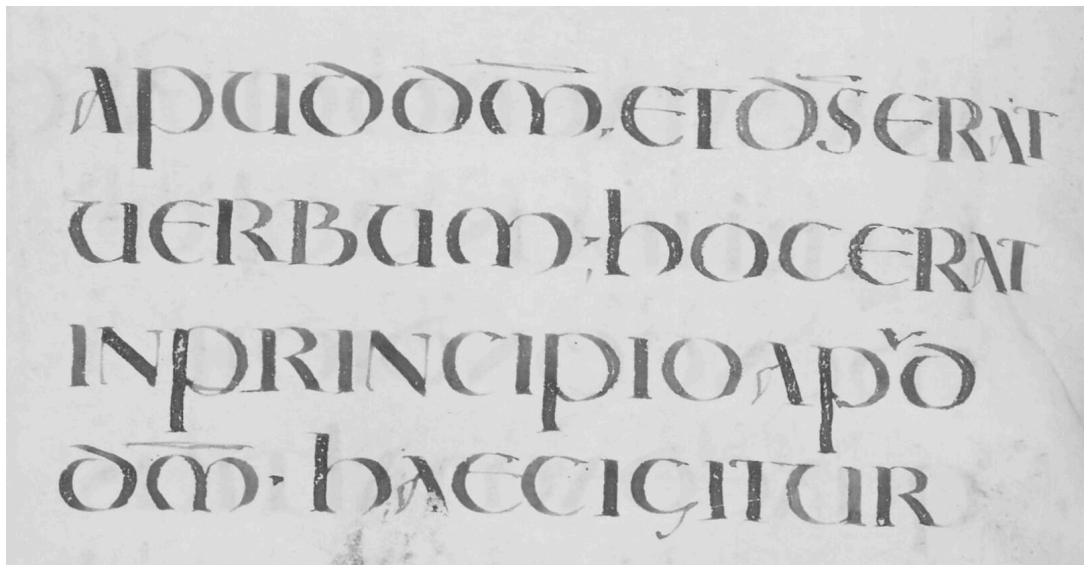 apuddm̅, etds̅erat
uerbum·hocerat
inprincipioapᵛd
dm̅· haecigitur